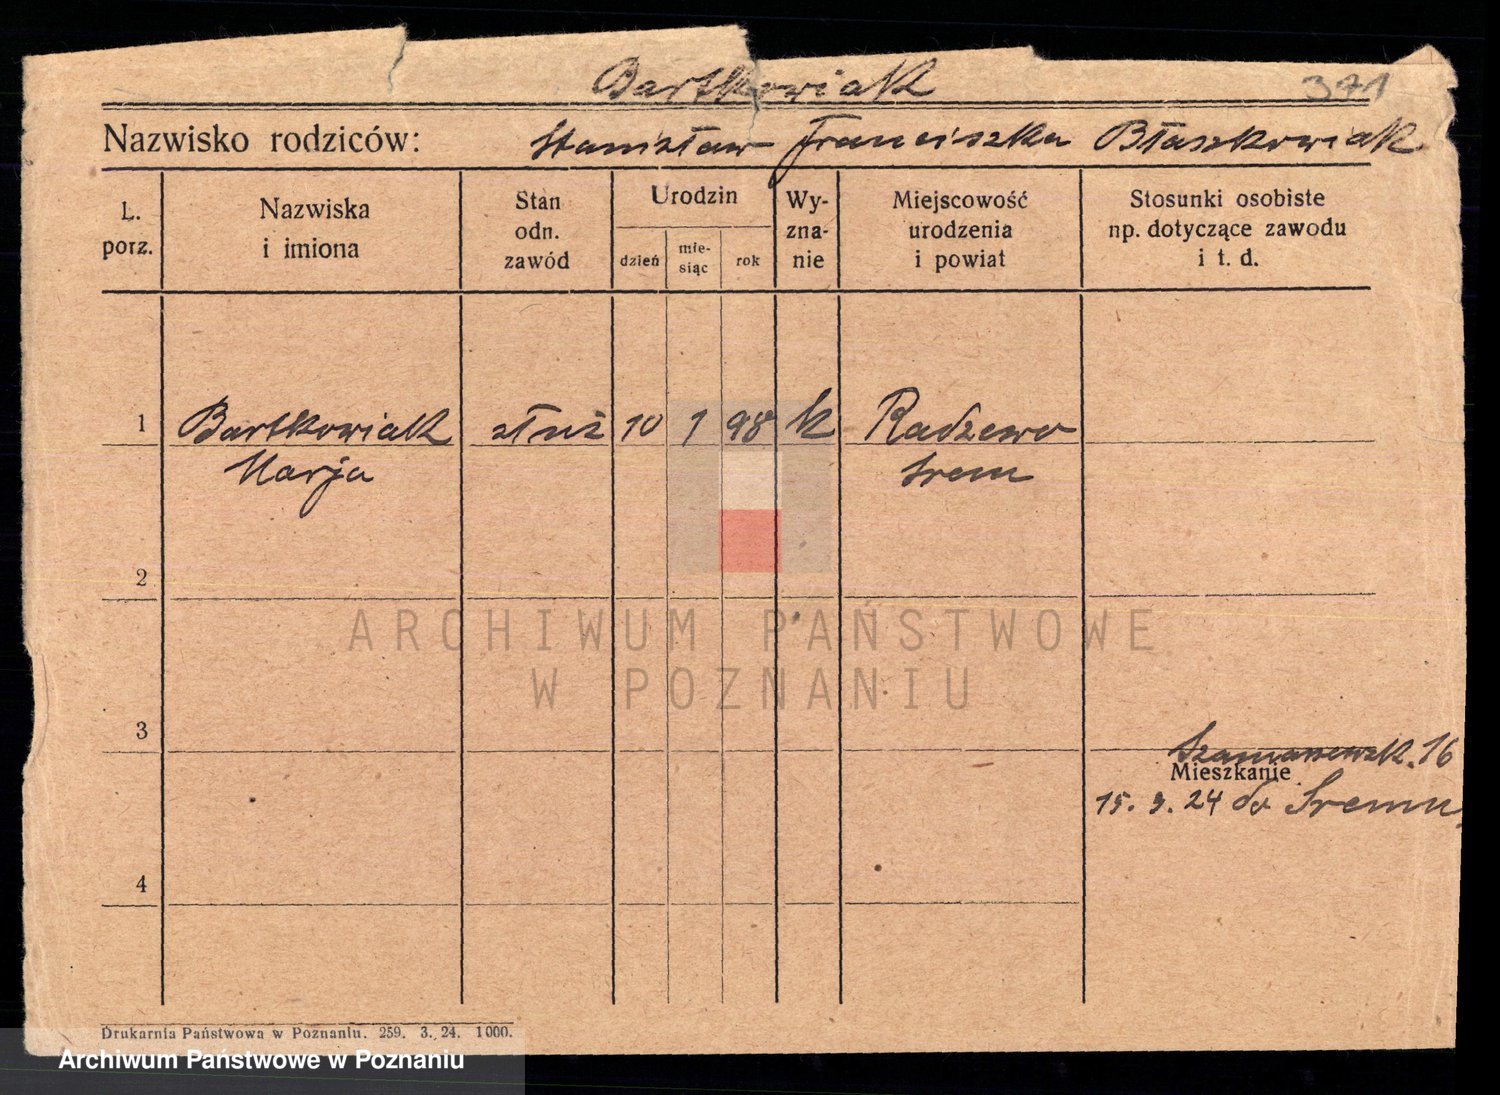 Bartkowiak 371
Nazwisko rodziców: Stanisław Franciszka Błaszkowiak
L. porz.
Nazwiska i imiona
Stan odn. zawód
Urodzin
dzień
mie-siąc
rok
Wy-zna-nie
Miejscowość urodzenia i powiat
Stosunki osobiste np. dotyczące zawodu i t. d.
1 Bartkowiak służ 10 1 98 k Radzewo
Marja Śrem
2
ARCHIWUM PAŃSTWOWE
W POZNANIU
3
16
Mieszkanie
15. 9. 24 do Śremu
4
Drukarnia Państwowa w Poznaniu. 259. 3. 24. 1000.
Archiwum Państwowe w Poznaniu